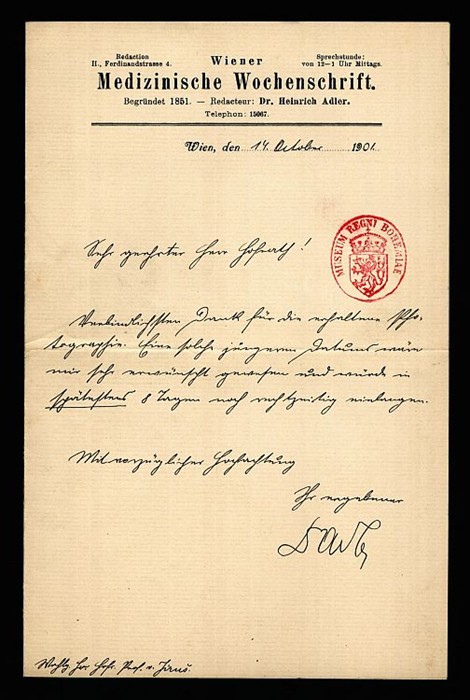 Redaction
II., Ferdinandstrasse 4.
Wiener
Sprechstunde:
von 12–1 Uhr Mittags.
Medizinische Wochenschrift.
Begründet 1851. — Redacteur: Dr. Heinrich Adler.
Telephon: 15067.
Wien, den 14. October 1901.
MUSEUM REGNI BOHEMIAE
Sehr geehrter Herr Hofrath!
Verbindlichsten Dank für die erhaltene Pho-
tographie. Eine solche jüngeren Datums wäre
mir sehr erwünscht gewesen und würde in
spätestens 8 Tagen noch rechtzeitig einlangen.
Mit vorzüglicher Hochachtung
Ihr ergebener
DAdler
Herr Hofr. Prof. v.